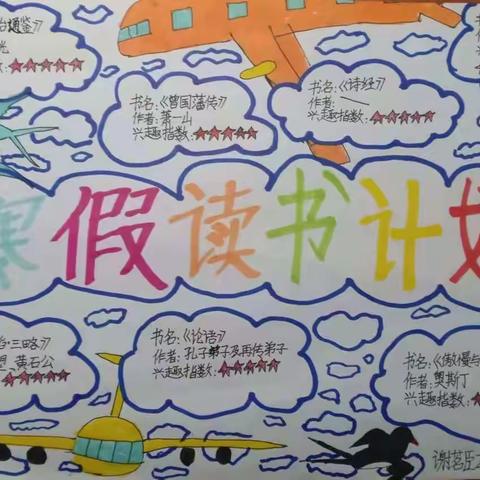 治通鉴》
光
★★★★★
书名:《曾国藩传》
作者:萧一山
兴趣指数:★★★★★
书名:《诗经》
作者: —
兴趣指数:★★★★★
书
作
兴
寒假读书计划
·三略》
黄石公
★★★★★
书名:《论语》
作者:孔子弟子及再传弟子
兴趣指数:★★★★★
书名:《傲慢与
作者:奥斯丁
兴趣指数:★
谢茗臣